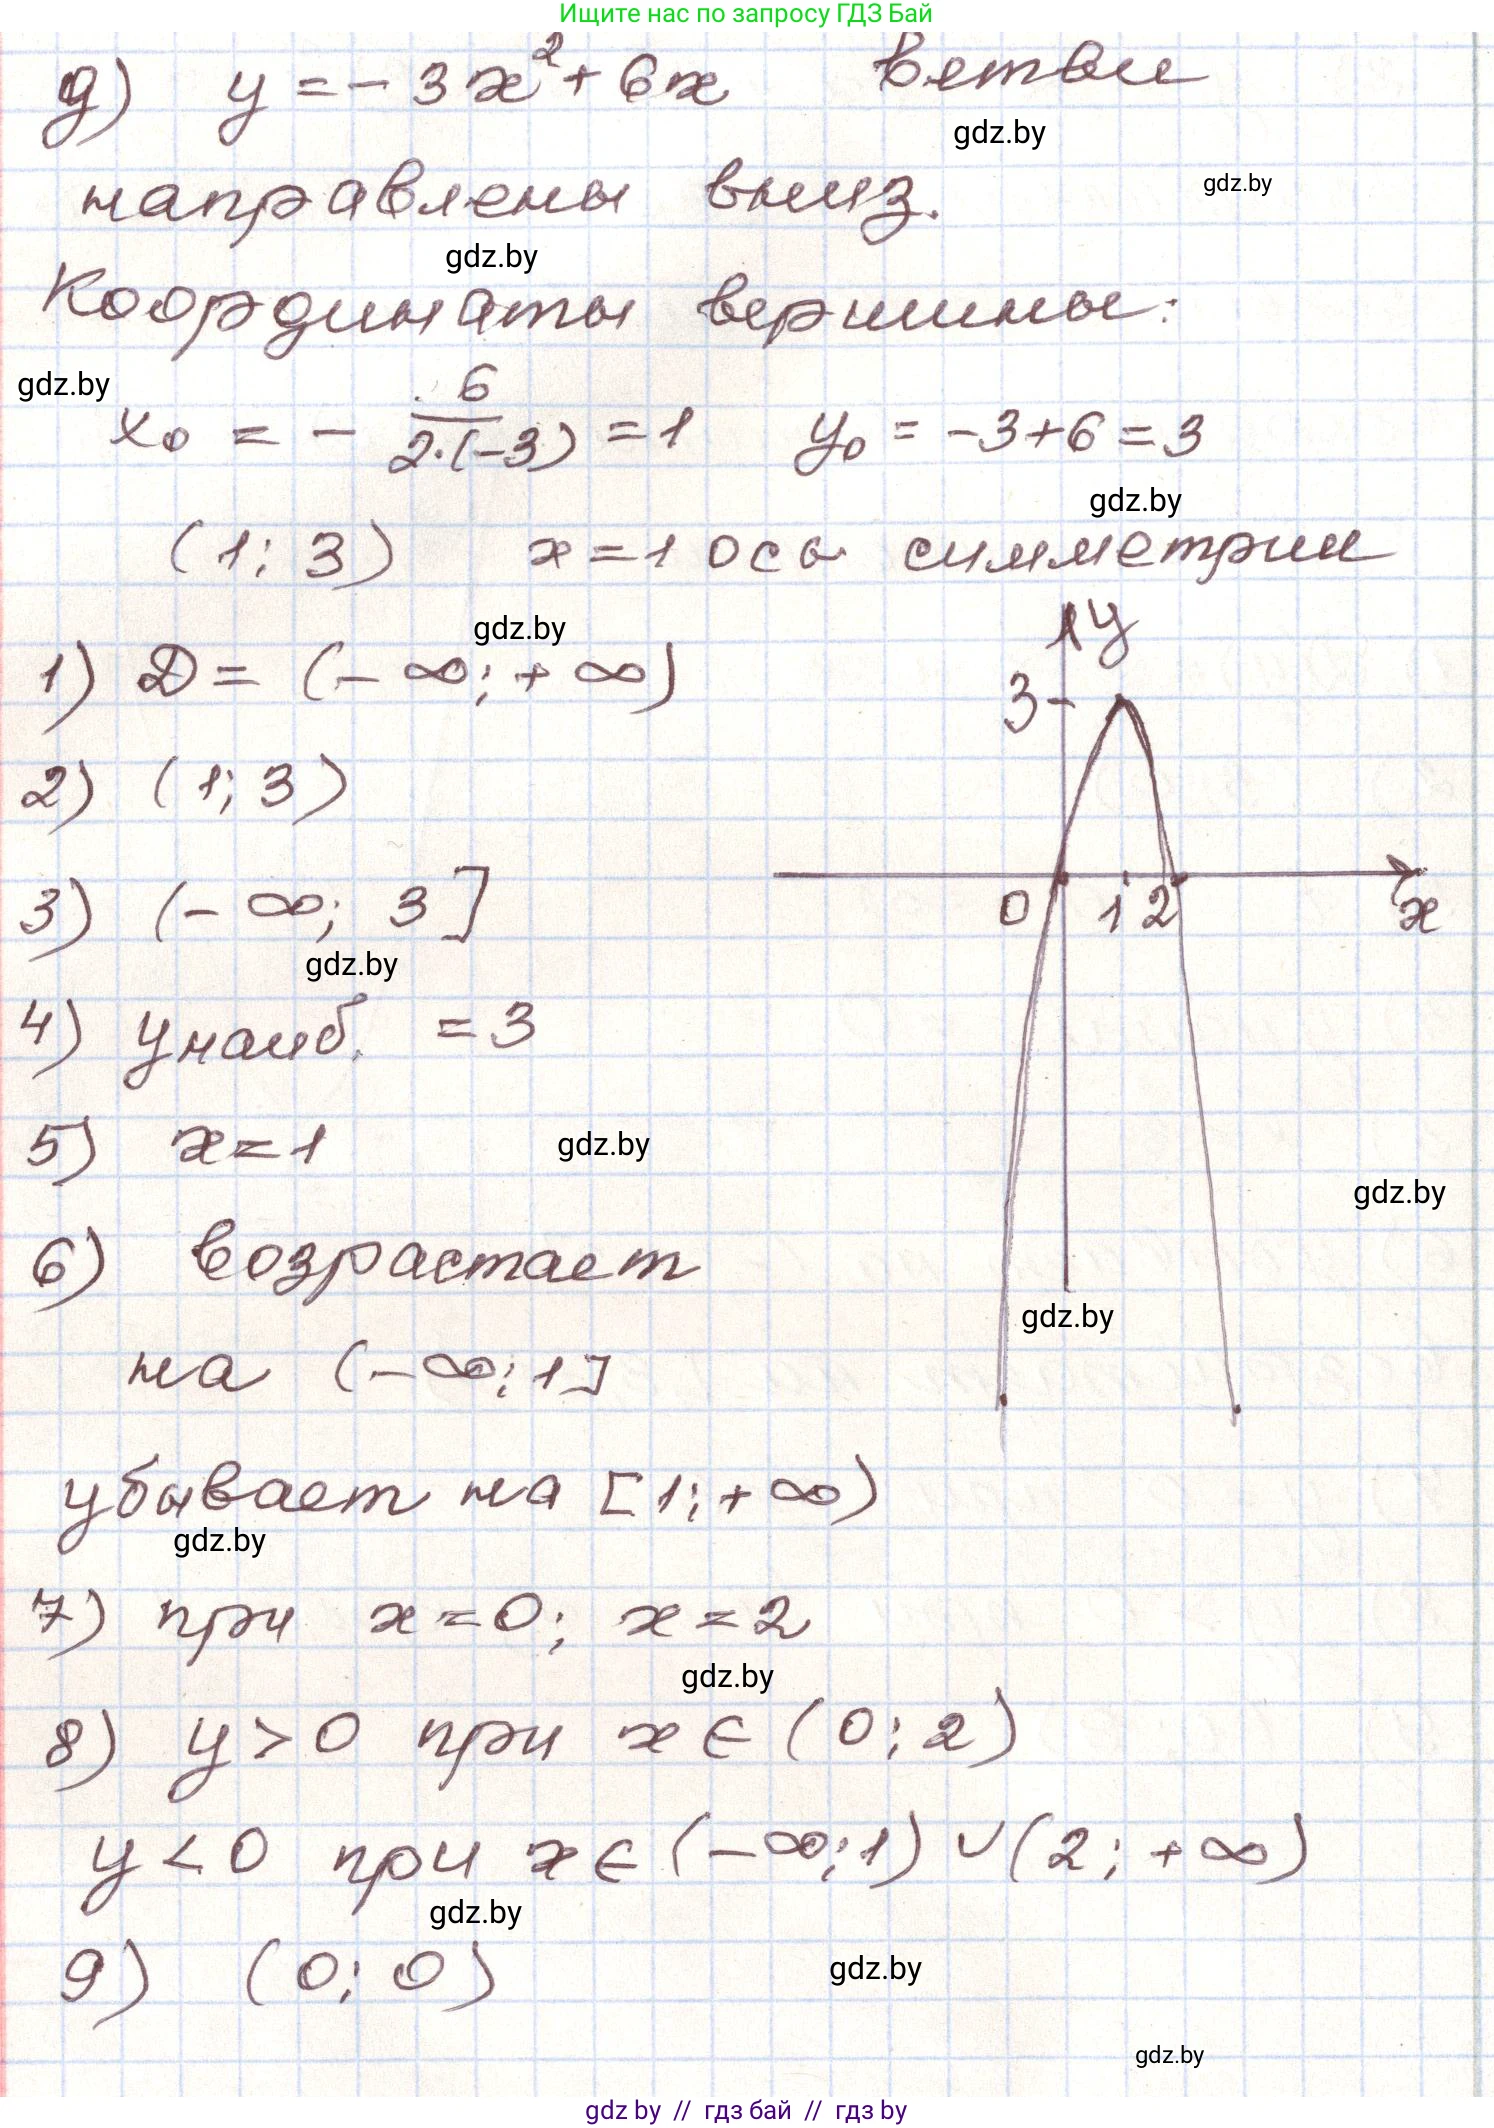 Ищите нас по запросу ГДЗ Бай
д) y = -3x² + 6x ветви
gdz.by
gdz.by
направлены вниз.
gdz.by
Координаты вершины:
gdz.by
x₀ = - 6/(2·(-3)) = 1 y₀ = -3+6=3
gdz.by
(1; 3) x=1 ось симметрии
gdz.by
1) D = (-∞; +∞)
2) (1; 3)
3) (-∞; 3]
gdz.by
4) yнаиб. = 3
5) x=1
gdz.by
6) возрастает
на (-∞; 1]
убывает на [1; +∞)
gdz.by
7) при x=0; x=2
gdz.by
8) y>0 при x∈(0; 2)
y<0 при x∈(-∞; 1)∪(2; +∞)
gdz.by
9) (0; 0)
gdz.by
gdz.by
y
3
0 1 2 x
gdz.by
gdz.by
gdz by // гдз бай // гдз by